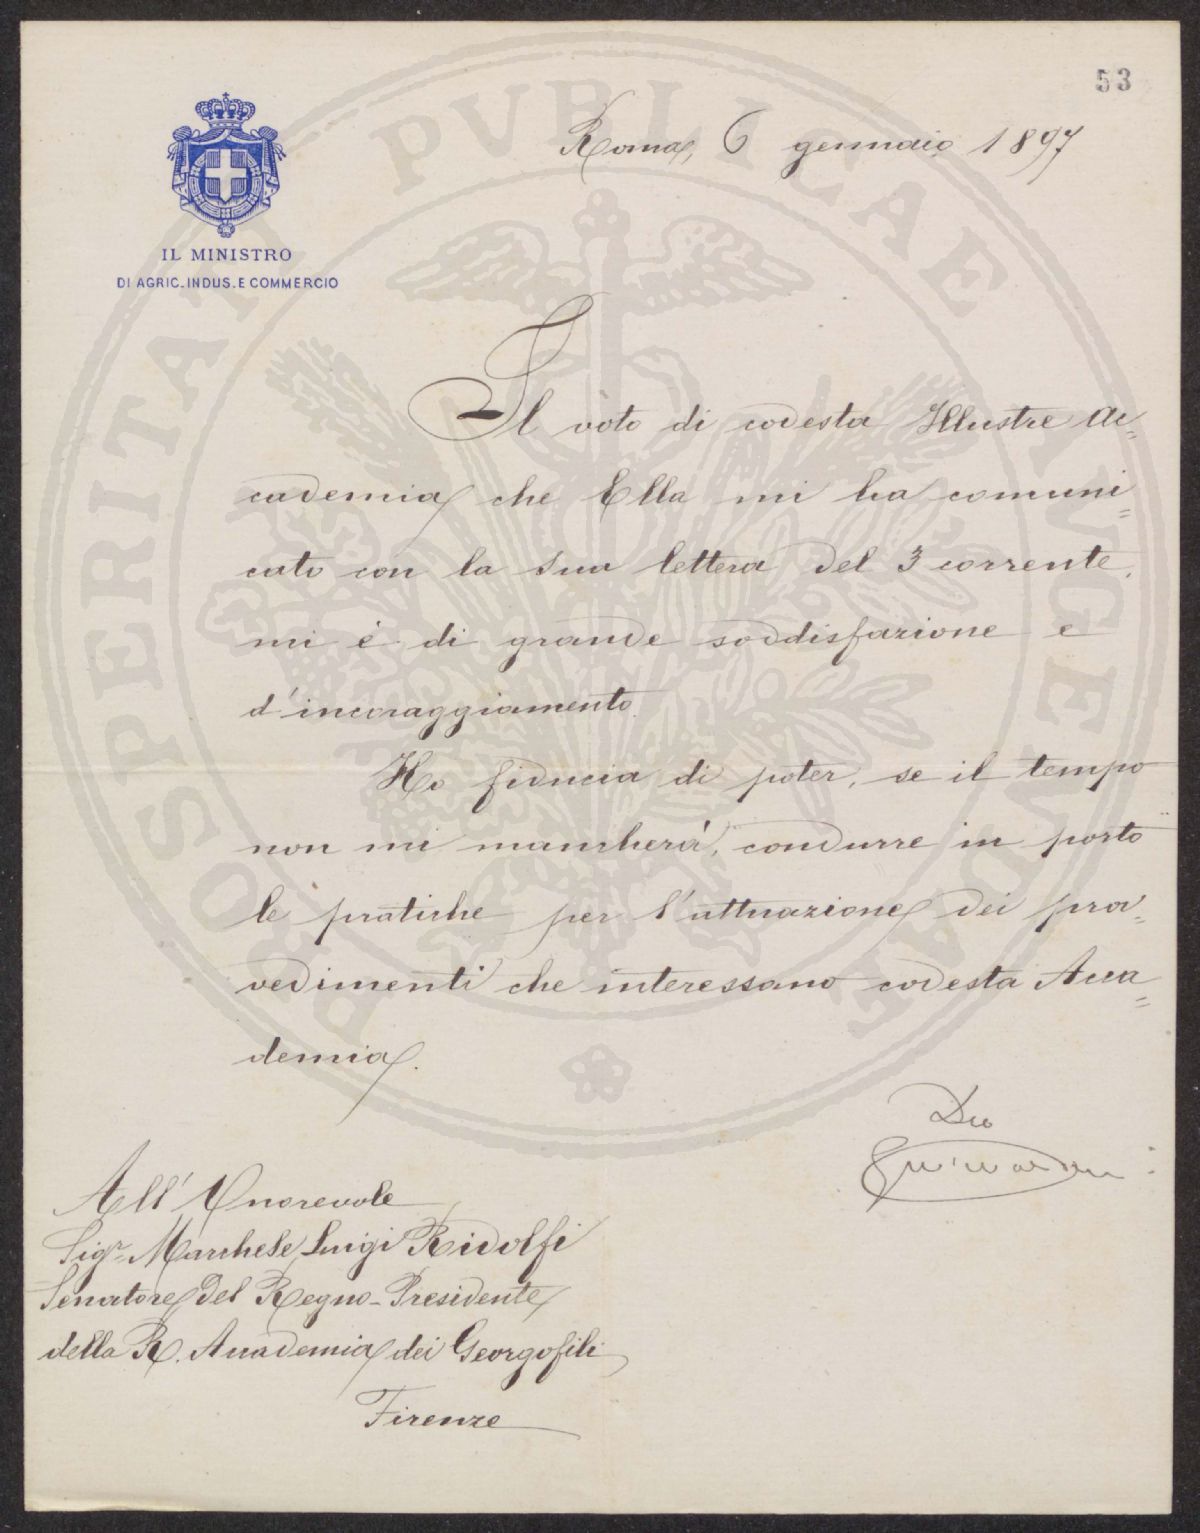 53
Roma, 6 gennaio 1897
IL MINISTRO
DI AGRIC. INDUS. E COMMERCIO
Il voto di codesta Illustre Ac=
cademia che Ella mi ha comuni=
cato con la sua lettera del 3 corrente,
mi è di grande soddisfazione e
d'incoraggiamento.
Ho fiducia di poter, se il tempo
non mi mancherà, condurre in porto
le pratiche per l'attuazione dei prov=
vedimenti che interessano codesta Acca=
demia.
All'Onorevole
Sigr. Marchese Luigi Ridolfi
Senatore del Regno - Presidente
della R. Accademia dei Georgofili
Firenze
PROSPERITATI PVBLICAE AVGENDAE